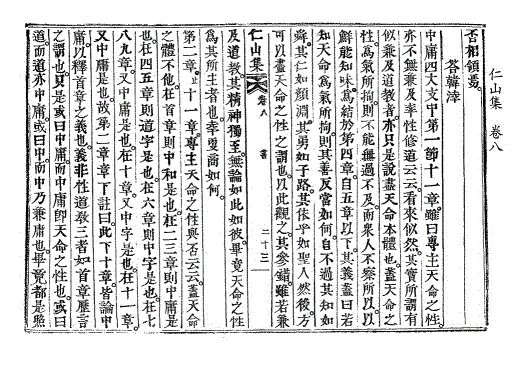 仁山集 卷八
否相領憂
答韓滓
中庸四大支中第一節十一章雖曰專主天命之性
亦不無兼及率性修道云云看來似然其實所謂有
似兼及道教者亦只是說盡天命本體也蓋天命之
性爲氣所拘則不能無過不及而衆人不察所以
鮮能知味爲結於第四章自五章以下其義蓋曰若
知天命爲氣所拘則其善反當如何自不過其知如
舜其仁如顏淵其勇如子路其依乎如聖人然後方
可以盡天命之性之謂也以此觀之其參錯雖若兼
仁山集 卷八 書 二十三
及道教其精神獨至無論如此如彼畢竟天命之性
爲其所主者也幸更商如何
第二章止十一章專主天命之性與否云云蓋天命
之體不他在首章則中和是也在二三章則中庸是
也在四五章則道字是也在六章則中字是也在七
八九章又中庸是也在十章又中字是也在十一章
又中庸是也故第二章章下註曰此下十章皆論中
庸以釋首章之義也義非性道敎三者如首章歷言
之謂也只是或曰中庸而中庸即天命之性也或曰
道而道亦中庸或曰中而中乃兼庸也畢竟都是照